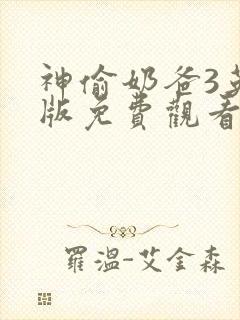 神偷奶爸3英
版免費觀看
羅溫-艾金森